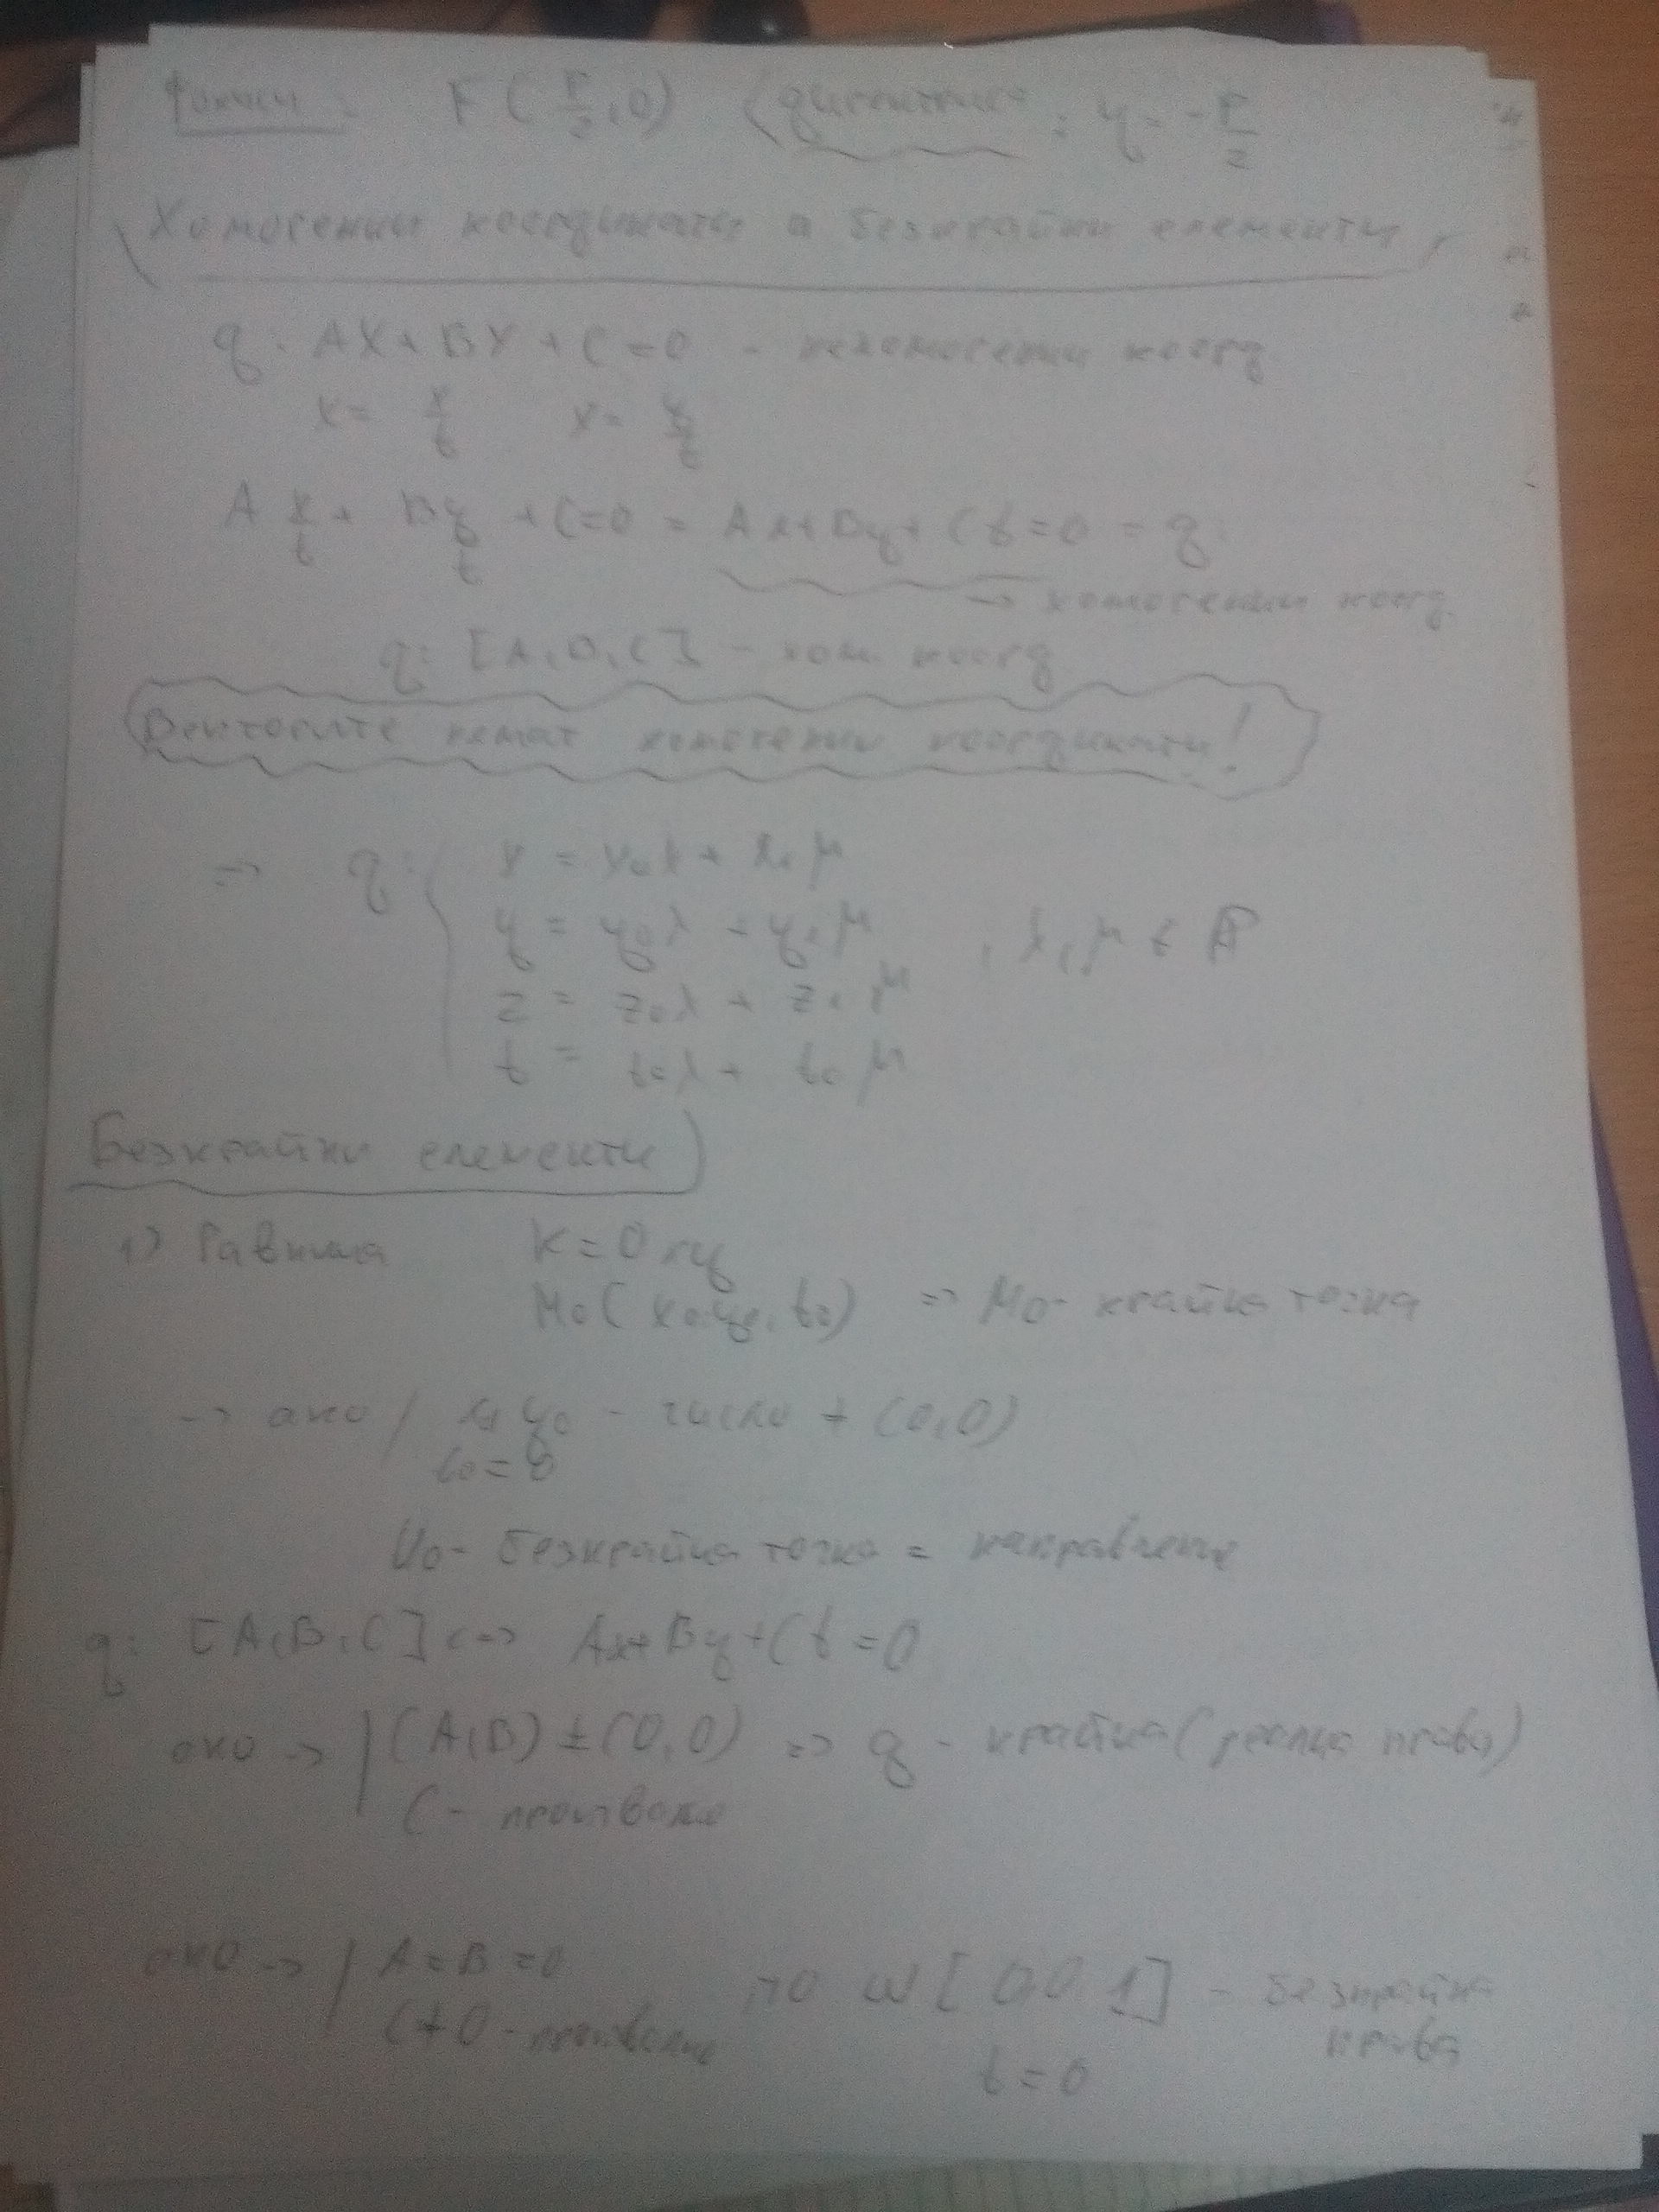 Фокуси: F(p/2, 0) (директриса: y = -p/2
Хомогенни координати и безкрайни елементи
g: AX + BY + C = 0 - нехомогенни коорд
x = x/t y = y/t
A x/t + B y/t + C = 0 = Ax + By + Ct = 0 = g:
→ хомогенни коорд.
g: [A, B, C] - хом. коорд
Векторите нямат хомогенни координати!
=> g: x = x0λ + x1μ
y = y0λ + y1μ , λ, μ ∈ P
z = z0λ + z1μ
t = t0λ + t0μ
Безкрайни елементи
1) Равнина K = Oxy
M0(x0, y0, t0) => M0 - крайна точка
→ ако / y0 - число ≠ (0,0)
t0 = 0
U0 - безкрайна точка = направление
g: [A, B, C] <-> Ax + By + Ct = 0
ако → | (A, B) ≠ (0, 0) => g - крайна (реална права)
C - произволно
ако → | A = B = 0 то ω [0, 0, 1] - безкрайна
C ≠ 0 - произволно права
t = 0